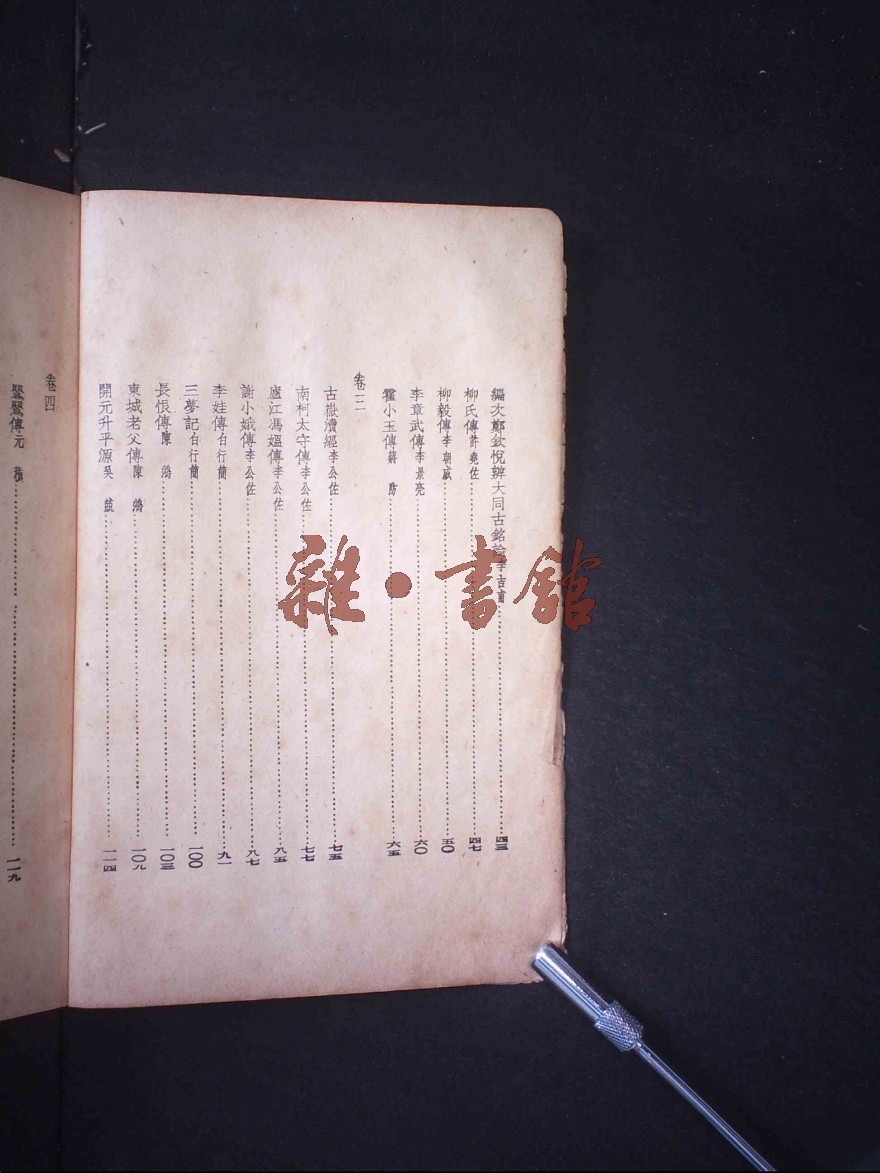 編次鄭欽悅辨大同古銘論李吉甫……四三
柳氏傳許堯佐……四七
柳毅傳李朝威……五〇
李章武傳李景亮……六〇
霍小玉傳蔣防……六五
卷三
古嶽瀆經李公佐……七五
南柯太守傳李公佐……七七
廬江馮媼傳李公佐……八五
謝小娥傳李公佐……八七
李娃傳白行簡……九一
三夢記白行簡……一〇〇
長恨傳陳鴻……一〇三
東城老父傳陳鴻……一〇九
開元升平源吳兢……一一四
卷四
鶯鶯傳元稹……一一九
雜·書館